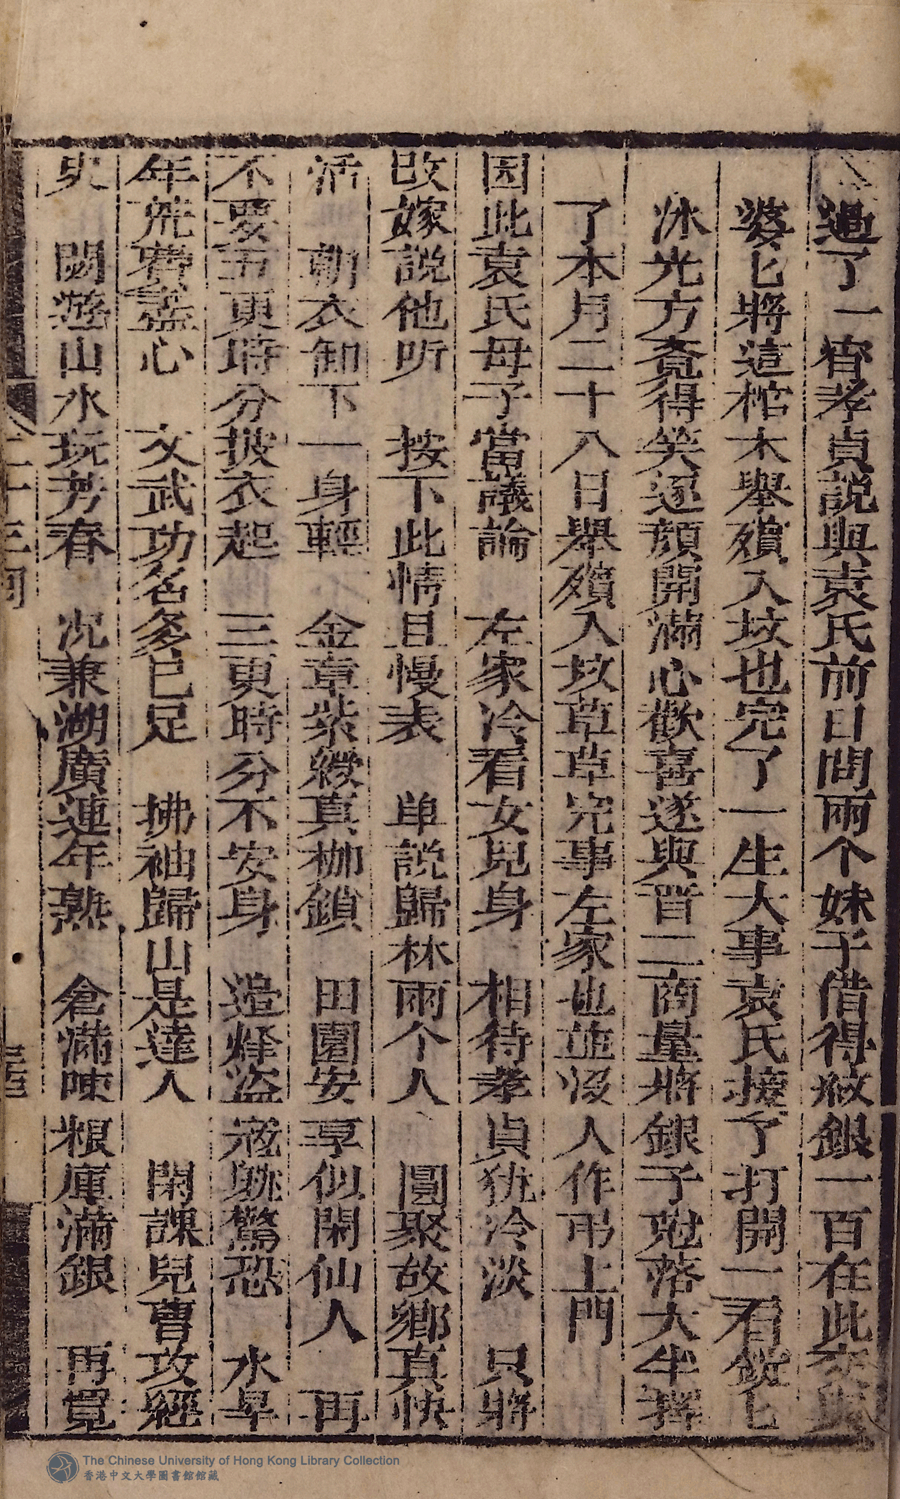 過了一宵孝貞說與袁氏前日問兩个妹子借得紋銀一百在此交與
婆匕將這棺木舉殯入坟也完了一生大事袁氏接了打開一看銳匕
氷光方覓得笑逐顏開滿心歡喜遂與晋二商量將銀子尅落大半擇
了本月二十八日舉殯入坟草草完事左家也並沒人作弔上門
因此袁氏母子當議論　左家冷看女兒身　相待孝貞犹冷淡　只將
改嫁說他听　按下此情且慢表　单說歸林兩个人　圓聚故鄉真快
活　朝衣卸下一身輕　金章紫綬真枷鎖　田園安享似閑仙人　再
不要五更時分披衣起　三更時分不安身　造烽盜寇跳驚恐　水旱
年荒暮盡心　文武功名多已足　拂袖歸山是達人　閑課兒曹攻經
史　閑遊山水玩芳春　况兼湖廣連年熟　倉滿陳粮庫滿銀　再覓
二十三回
The Chinese University of Hong Kong Library Collection
香港中文大學圖書館館藏